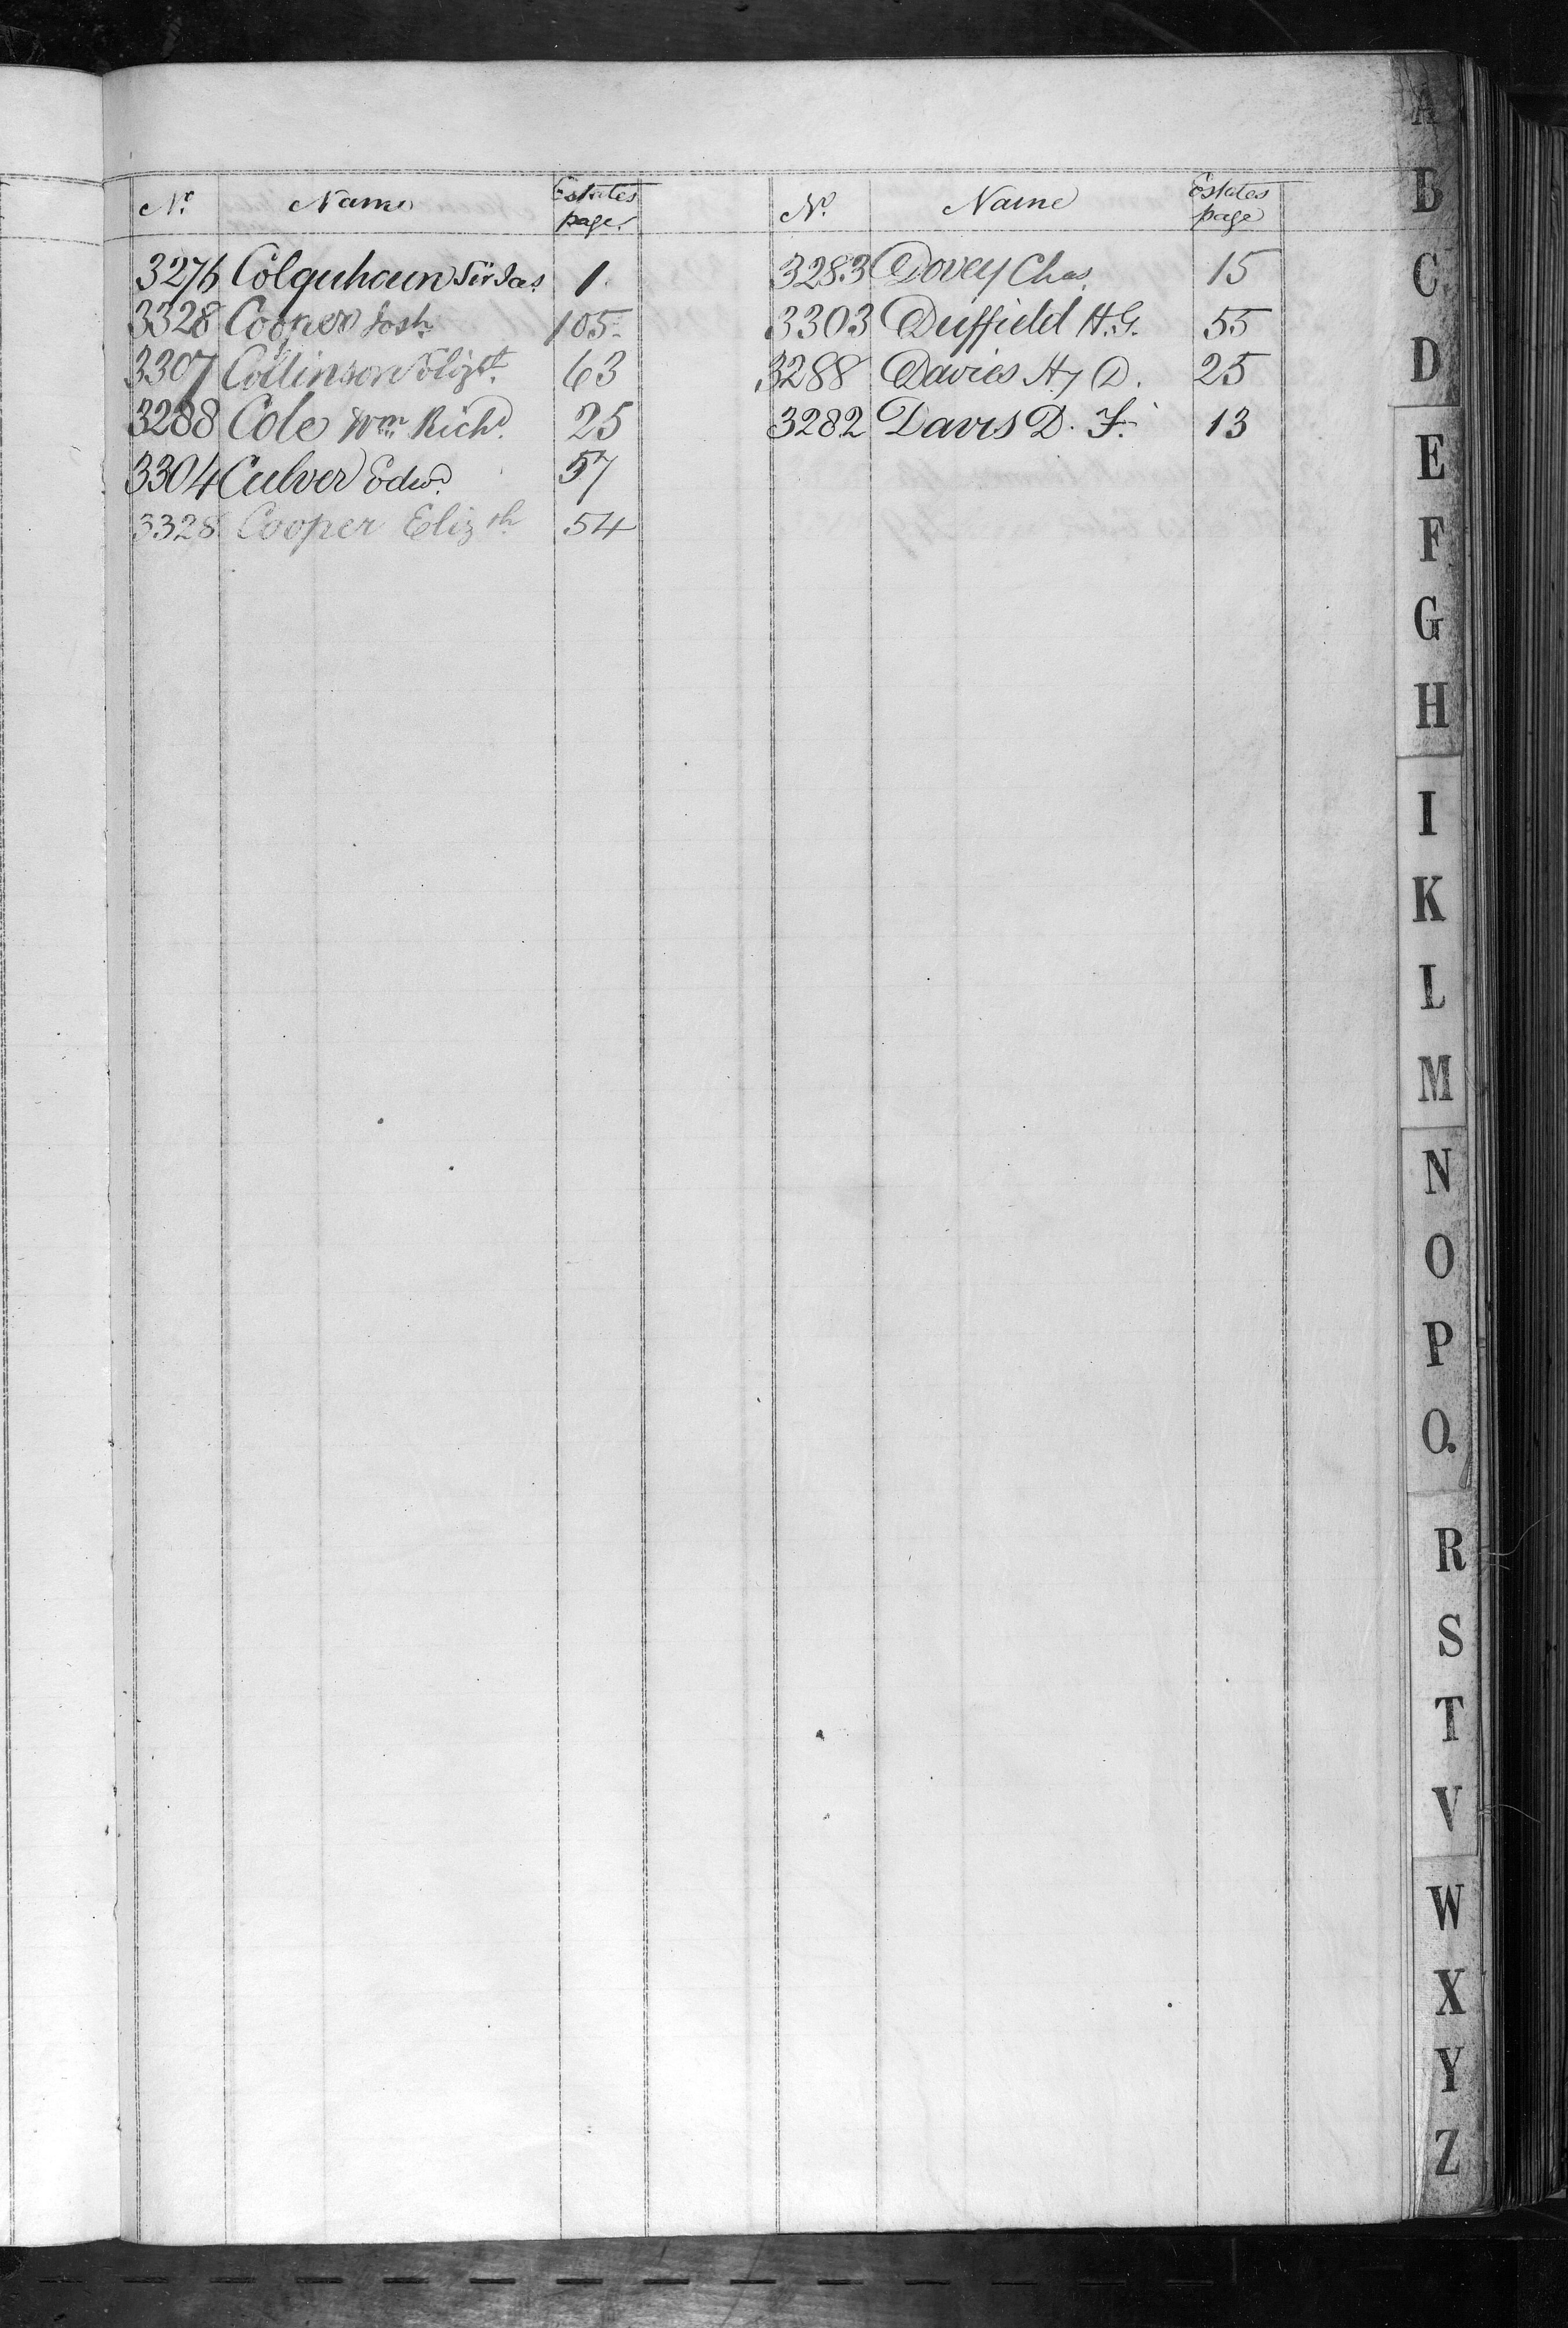 No. Name Estates page
3276 Colquhoun Sir Jas. 1.
3328 Cooper Josh. 105.
3307 Collinson Elizth. 63
3288 Cole Wm. Richd. 25
3304 Culver Edwd. 57
3328 Cooper Elizth. 54
No. Name Estates page
3283 Dovey Chas. 15
3303 Duffield H.G. 55
3288 Davies Hy D. 25
3282 Davis D. F. 13
A
B
C
D
E
F
G
H
I
K
L
M
N
O
P
Q.
R
S
T
V
W
X
Y
Z